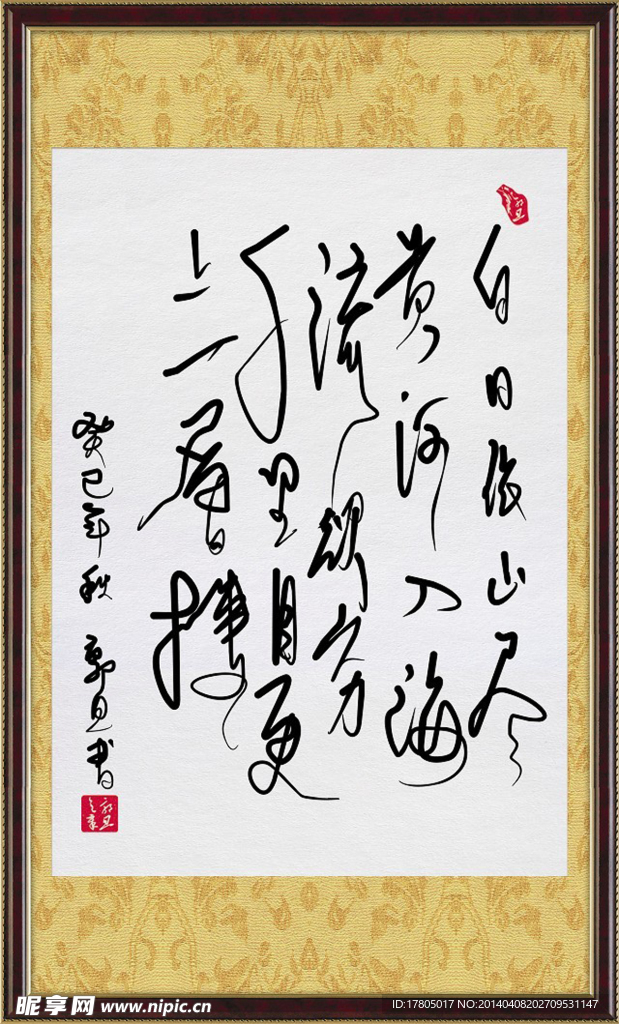 白日依山尽
黄河入海
流欲穷
千里目更
上一層樓
癸巳年秋 郭旦書
昵享网 www.nipic.cn
ID:17805017 NO:20140408202709531147